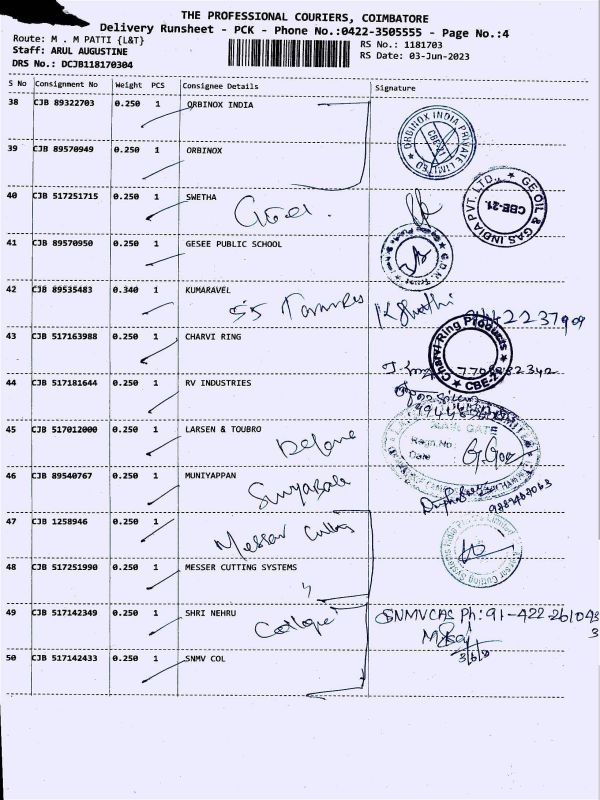 THE PROFESSIONAL COURIERS, COIMBATORE
Delivery Runsheet - PCK - Phone No.:0422-3505555 - Page No.:4
Route: M . M PATTI {L&T}
RS No.: 1181703
Staff: ARUL AUGUSTINE
RS Date: 03-Jun-2023
DRS No.: DCJB118170304
S No Consignment No Weight PCS Consignee Details Signature
38 CJB 89322703 0.250 1 ORBINOX INDIA
ORBINOX INDIA PRIVATE LIMITED
CBE-21
39 CJB 89570949 0.250 1 ORBINOX
40 CJB 517251715 0.250 1 SWETHA
GE OIL & GAS INDIA PVT. LTD.,
CBE-21.
41 CJB 89570950 0.250 1 GESEE PUBLIC SCHOOL
42 CJB 89535483 0.340 1 KUMARAVEL
2237909
43 CJB 517163988 0.250 1 CHARVI RING
Charvi Ring Products
CBE-21
44 CJB 517181644 0.250 1 RV INDUSTRIES
45 CJB 517012000 0.250 1 LARSEN & TOUBRO
MAIN GATE
Regn.No.
Date
46 CJB 89540767 0.250 1 MUNIYAPPAN
47 CJB 1258946 0.250 1
Messer Cutting
48 CJB 517251990 0.250 1 MESSER CUTTING SYSTEMS
Messer Cutting Systems India Private Limited
49 CJB 517142349 0.250 1 SHRI NEHRU
College
SNMVCAS Ph: 91-422-261043
3
50 CJB 517142433 0.250 1 SNMV COL